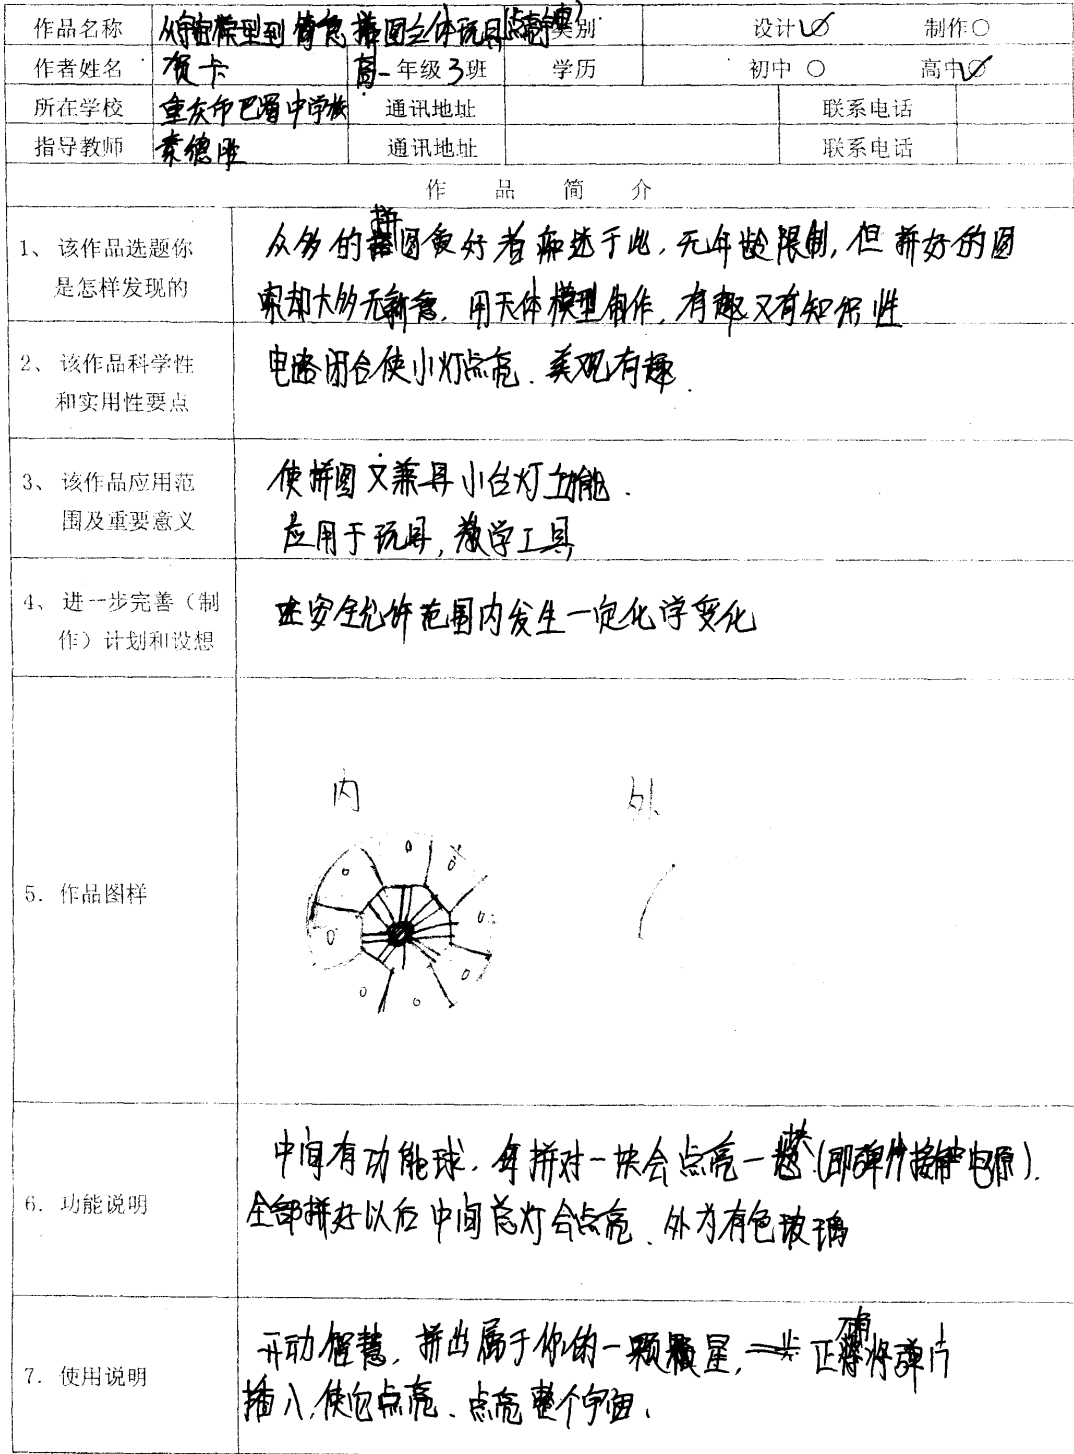 作品名称 从宇宙模型到情急拼图立体玩具(点亮宇宙) 类别 设计○ 制作○
作者姓名 贺卡 高一年级3班 学历 初中○ 高中○
所在学校 重庆市巴蜀中学校 通讯地址 联系电话
指导教师 袁德胜 通讯地址 联系电话
作品简介
1、该作品选题你
是怎样发现的
众多的拼图爱好者痴迷于此,无年龄限制,但拼好的图
案却大多无新意,用天体模型制作,有趣又有知识性
2、该作品科学性
和实用性要点
电路闭合使小灯点亮、美观有趣.
3、该作品应用范
围及重要意义
使拼图又兼具小台灯功能.
应用于玩具,教学工具
4、进一步完善(制
作)计划和设想
在安全允许范围内发生一定化学变化
5. 作品图样
内 外
6. 功能说明
中间有功能球,每拼对一块会点亮一块(即弹片接触电源).
全部拼好以后中间总灯会点亮、外为有色玻璃
7. 使用说明
开动智慧,拼出属于你的一颗颗星,一步正确将弹片
插入,使它点亮、点亮整个宇宙.